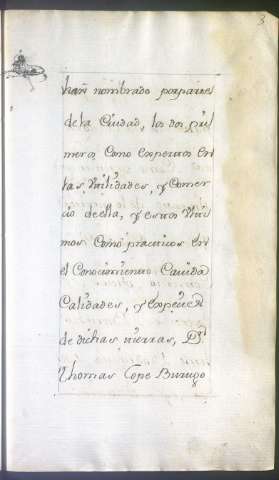 3
han nombrado por parte
de la Ciudad, los dos pri
meros Como expertos en
las Utilidades, y Comer
cio de ella, y estos Ulti
mos Como practicos en
el Conocimiento Cavida
Calidades, y
de dichas tierras, Dn
Thomas Cope Burugo